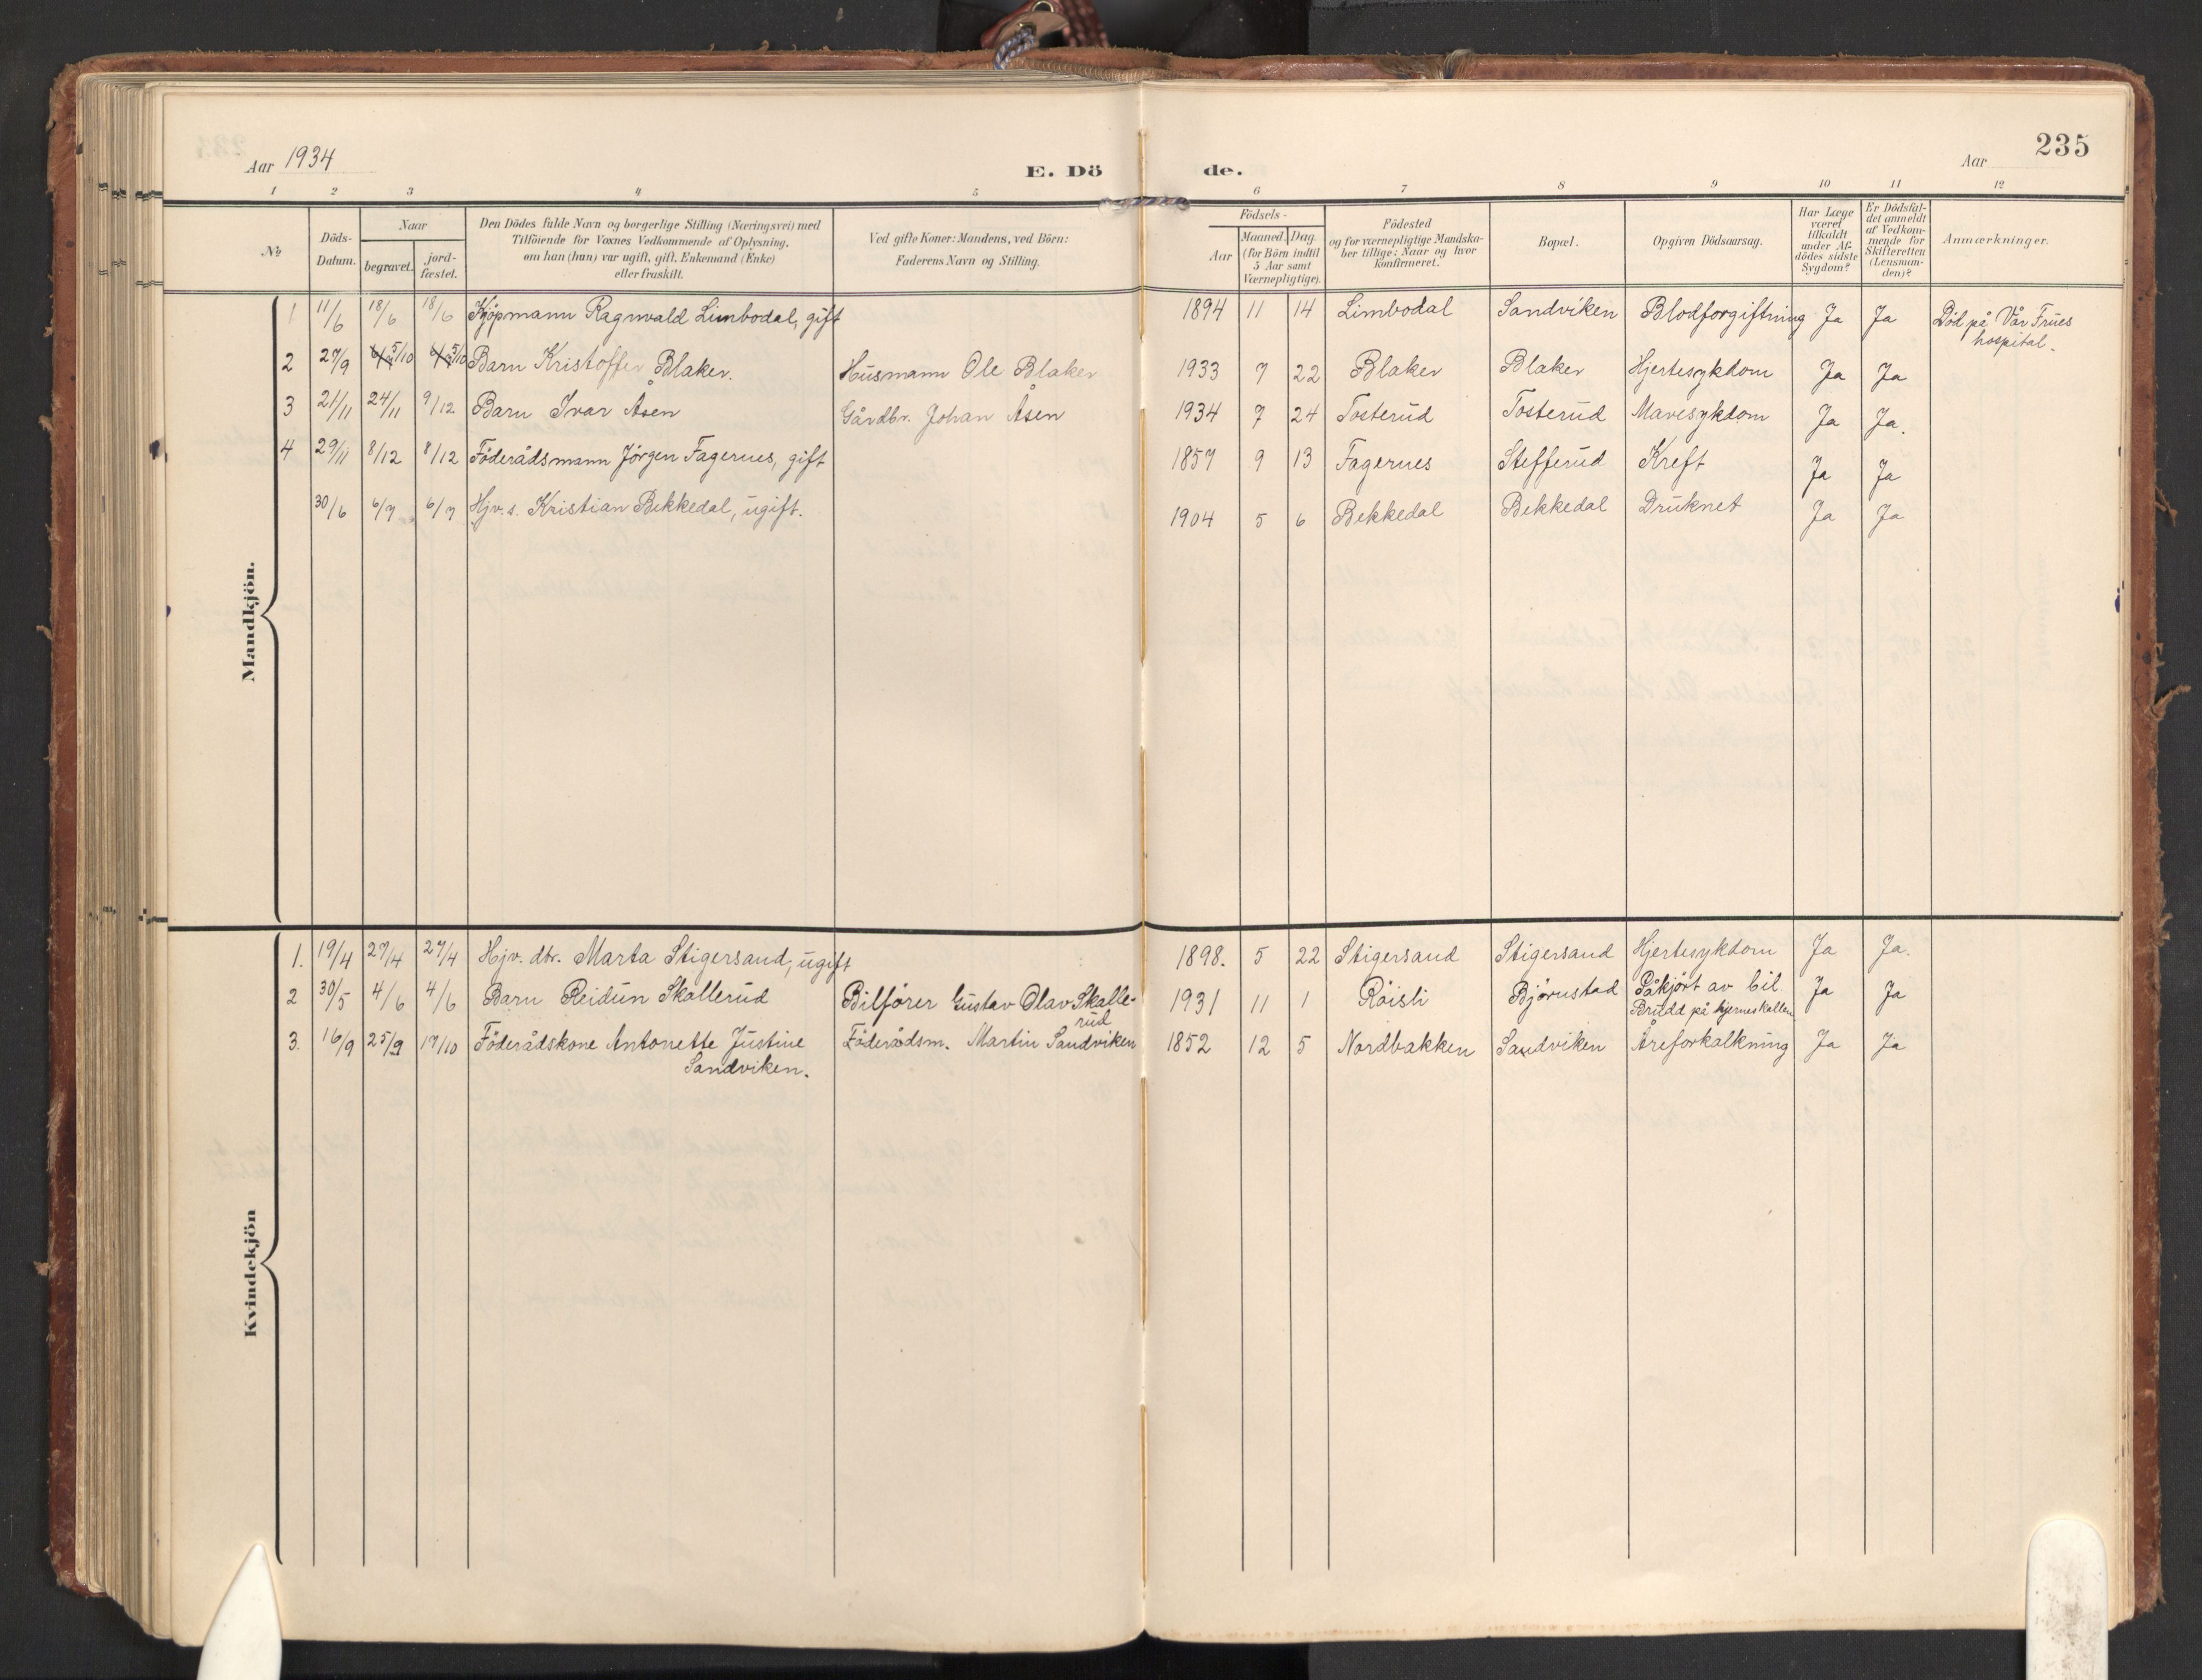 Aar 1934 E. Dö de. Aar 235
1 2 3 4 5 6 7 8 9 10 11 12
№
Döds-Datum.
Naar
begravet.
jord-fæstet.
Den Dödes fulde Navn og borgerlige Stilling (Næringsvei) med
Tilföiende for Voxnes Vedkommende af Oplysning,
om han (hun) var ugift, gift, Enkemand (Enke)
eller fraskilt.
Ved gifte Koner: Mandens, ved Börn:
Faderens Navn og Stilling.
Födsels-
Aar
Maaned. Dag
(for Börn indtil
5 Aar samt
Værnepligtige).
Födested
og for værnepligtige Mandska-
ber tillige: Naar og hvor
konfirmeret.
Bopæl.
Opgiven Dödsaarsag.
Har Læge
været
tilkaldt
under Af-
dödes sidste
Sygdom?
Er Dödsfal-
det anmeldt
af Vedkom-
mende for
Skifteretten
(Lensman-
den)?
Anmærkninger.
Mandkjön.
1 11/6 18/6 18/6 Kjöpmann Ragnvald Limbodal, gift 1894 11 14 Limbodal Sandviken Blodforgiftning Ja Ja Död på Vår Frues
hospital.
2 27/9 5/10 5/10 Barn Kristoffer Blaker. Husmann Ole Blaker 1933 7 22 Blaker Blaker Hjertesykdom Ja Ja
3 21/11 24/11 9/12 Barn Ivar Åsen Gårdbr. Johan Åsen 1934 7 24 Tosterud Tosterud Mavesykdom Ja Ja.
4 29/11 8/12 8/12 Föderådsmann Jörgen Fagernes, gift 1857 9 13 Fagernes Stefferud Kreft Ja Ja
30/6 6/7 6/7 Hjv. s. Kristian Bekkedal, ugift. 1904 5 6 Bekkedal Bekkedal Druknet Ja Ja
Kvindekjön
1. 19/4 27/4 27/4 Hjv. dtr. Marta Stigersand, ugift 1898. 5 22 Stigersand Stigersand Hjertesykdom Ja Ja.
2 30/5 4/6 4/6 Barn Reidun Skallerud Bilförer Gustav Olav Skalle-
rud 1931 11 1 Röisli Björnstad Påkjört av bil.
Brudd på hjerneskallen Ja Ja
3. 16/9 25/9 17/10 Föderådskone Antonette Justine
Sandviken. Föderådsm. Martin Sandviken 1852 12 5 Nordbakken Sandviken Åreforkalkning Ja Ja